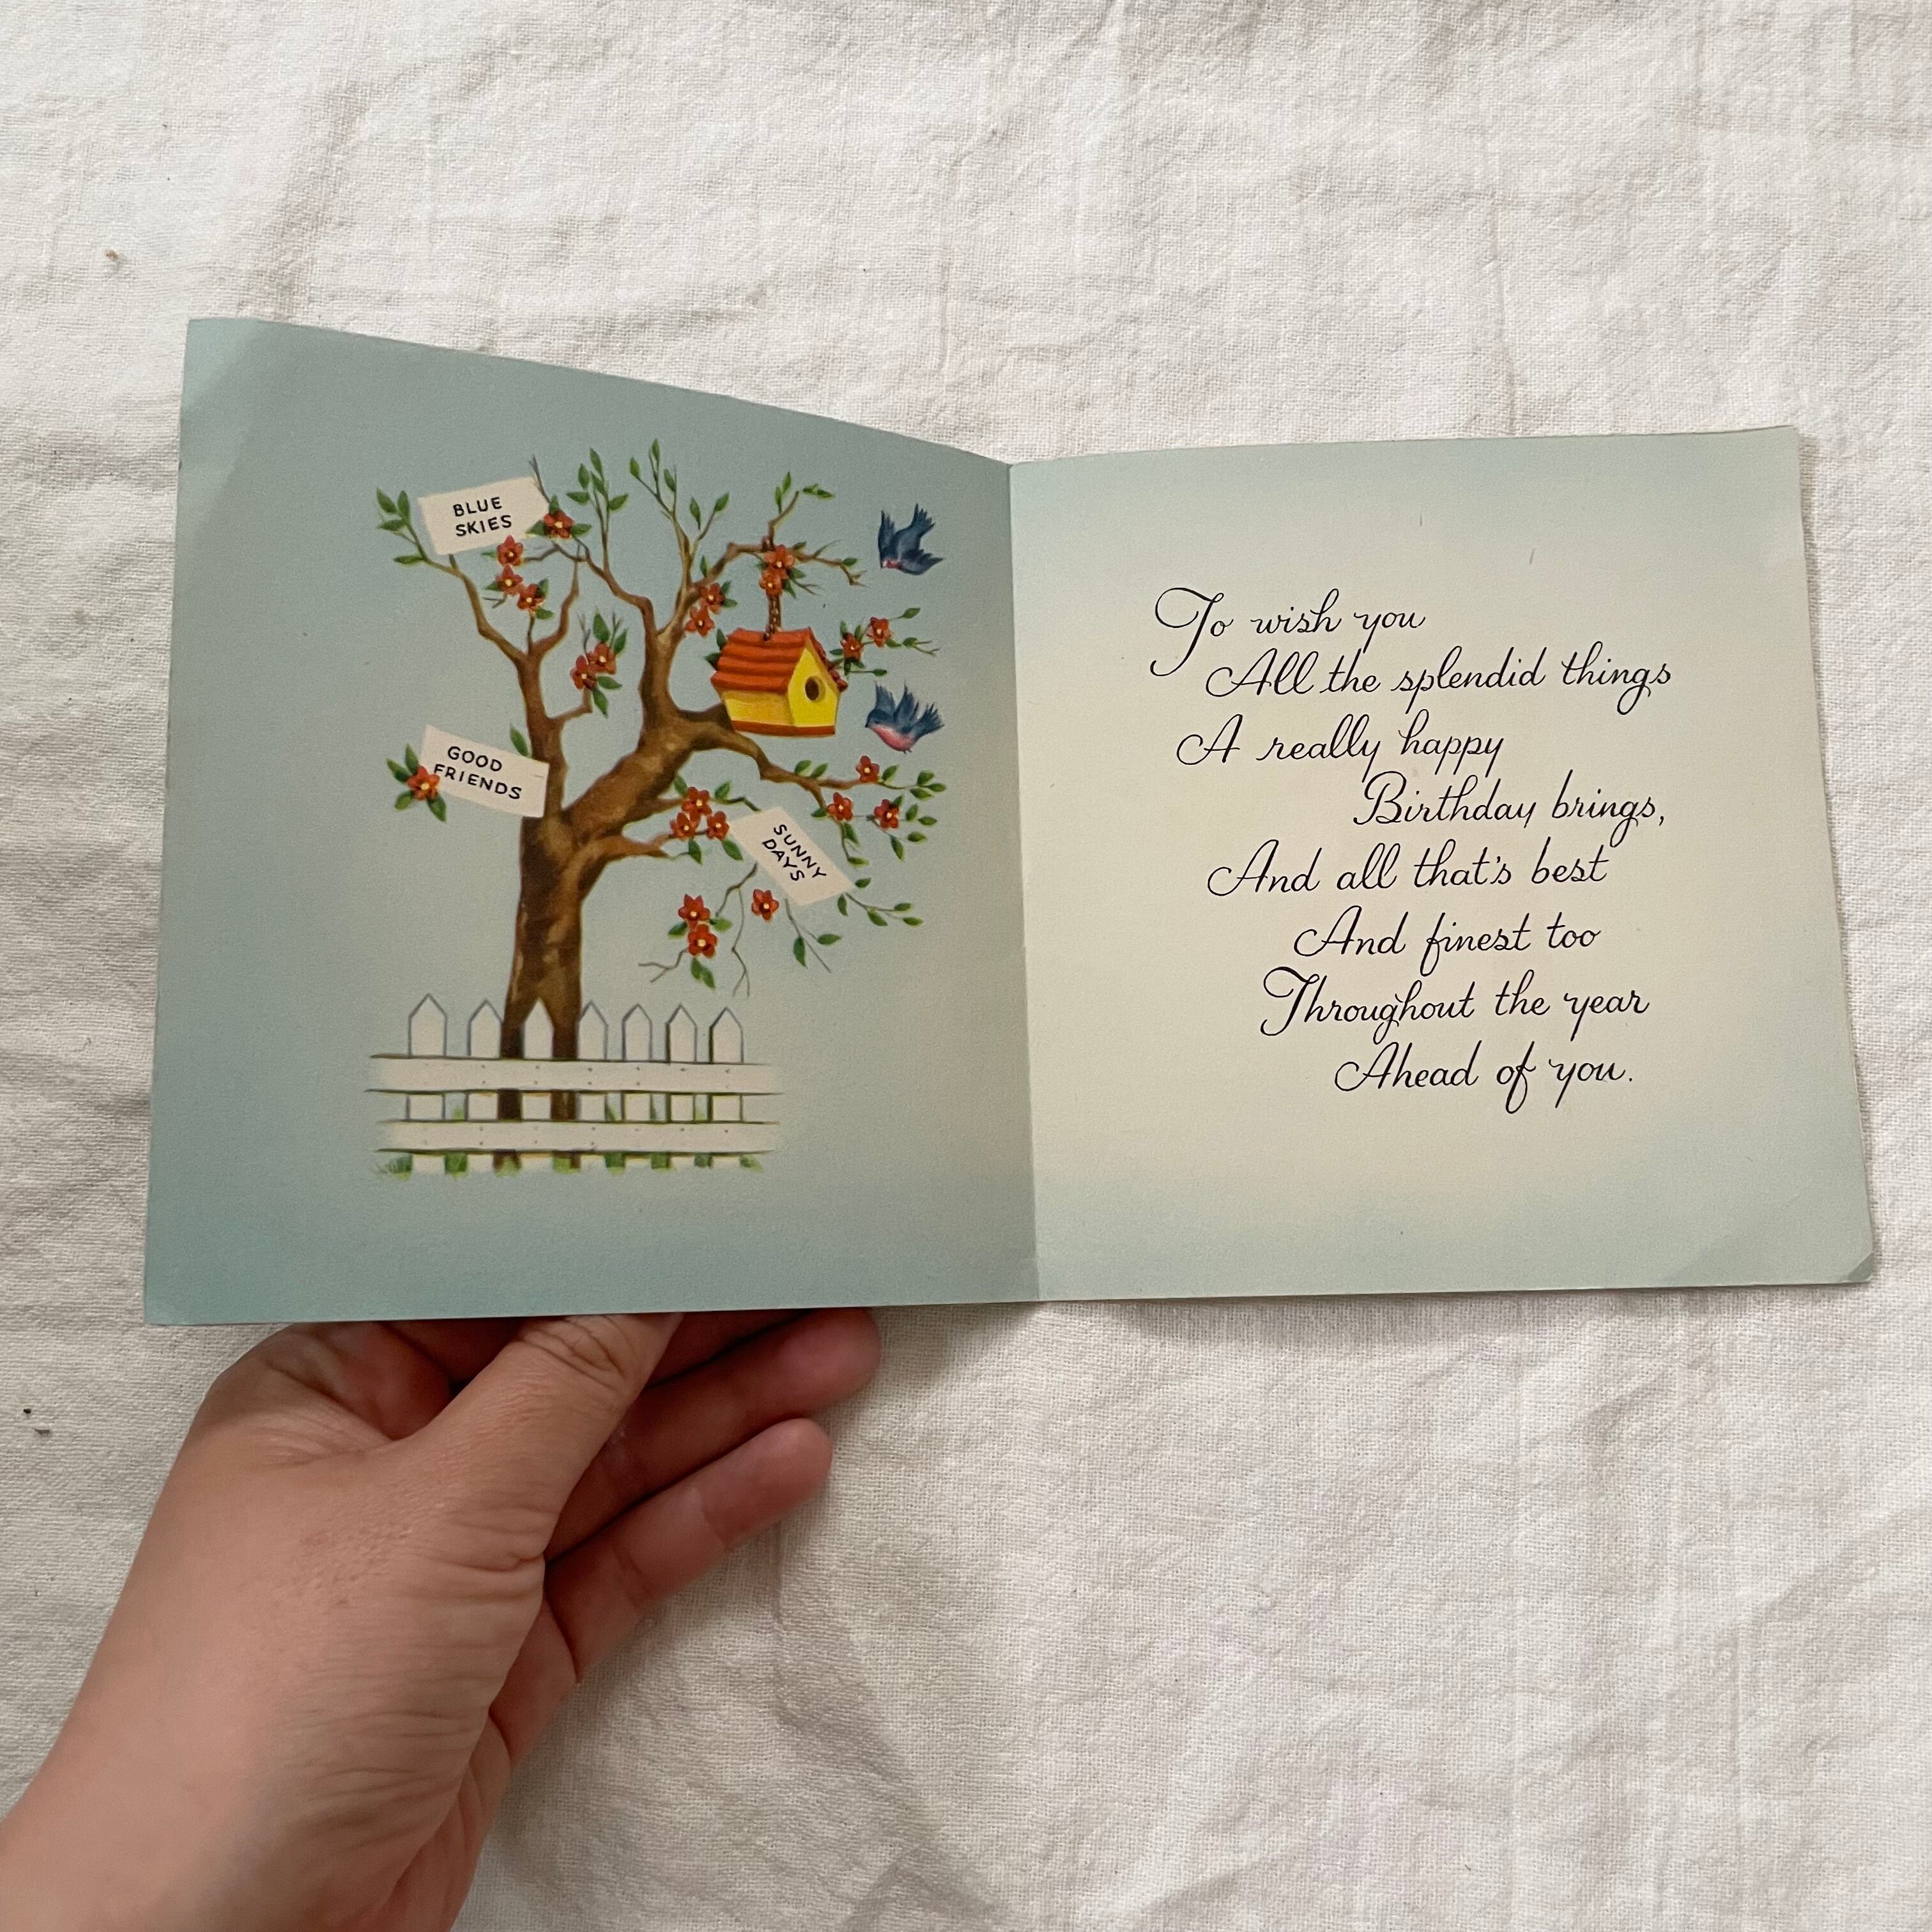 BLUE
SKIES
GOOD
FRIENDS
SUNNY
DAYS
To wish you
All the splendid things
A really happy
Birthday brings,
And all that's best
And finest too
Throughout the year
Ahead of you.